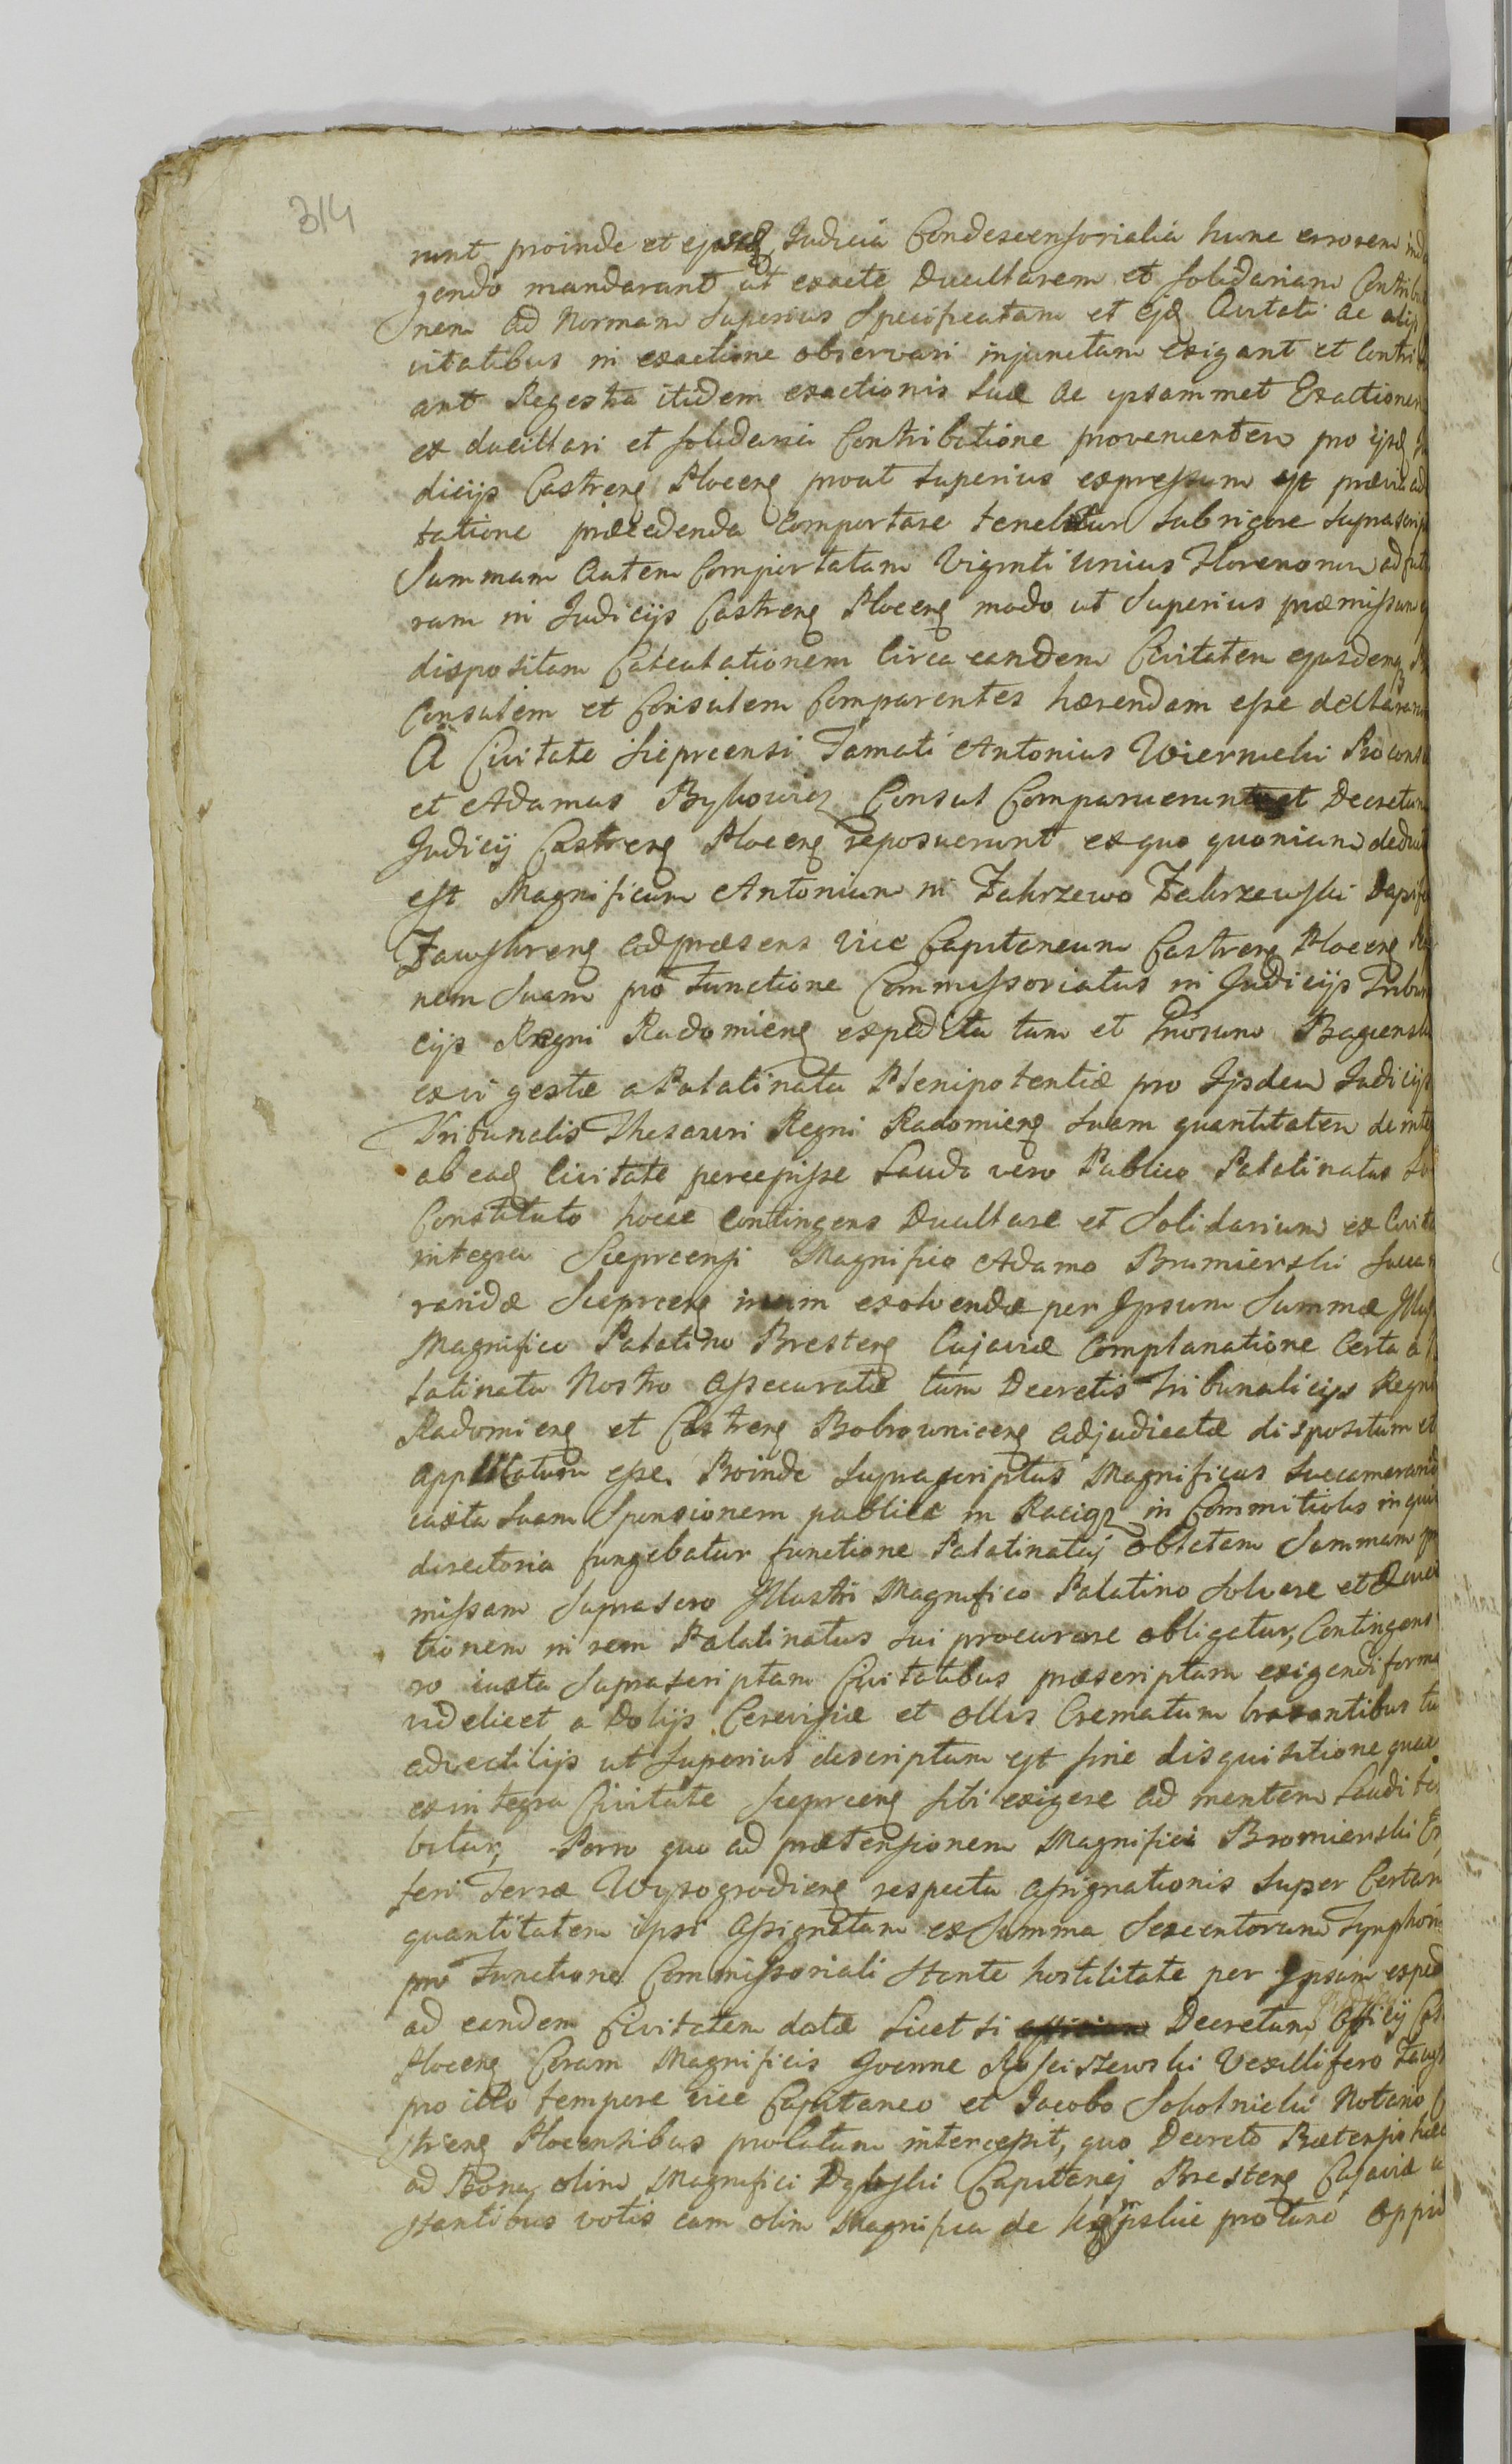 314
runt proinde et ejusdq Judicia Condescensorialia hunc errorem
gendo mandarunt ut exacte Ducillarem et solidariam Contribu
nem ad Normam superius Specificatam et ejdq Civitati ac alijs
vitatibus in exactione observari injunctam exigant et Contri
ant Regestra itidem exactionis suæ ac ipsammet Exactionem
ex ducillari et solidaria Contributione provenientem pro ijsdq Ju
dicijs Castrenq Plocenq prout superius expressum est prævia ad
tatione præcedenda Comportare tenebitur sub rigore suprascrip
Summam autem Comportatam Viginti unius Florenorum ad futu
ram in Judicijs Castrenq Plocenq modo ut Superius præmissum
dispositam Calculationem Circa eandem Civitatem ejusdemq
Consulem et Consulem Comparentes hærendam esse declararunt
A Civitate Sieprcensi Famati Antonius Wiernicki Proconsul
et Adamus Bykowicz Consul Comparuerunt et Decretum
Judicij Castrenq Plocenq reposuerunt ex quo quoniam deduct
est Magnificum Antonium in Zakrzewo Zakrzewski Dapife
Zawskrenq ad præsens Vice Capitaneum Castrenq Plocenq
nem suam pro Functione Commissoriatus in Judicijs Tribun
cijs Regni Radomienq expedita tum et Gnosum Bagienski
ex vi gestæ a Palatinatu Plenipotentiæ pro Ijsdem Judicijs
Tribunalis Thesauri Regni Radomienq suam quantitatem de inte
ab eadq Civitate percepisse Laudo vero Publico Palatinatus
Constituto hocce Contingens Ducillare et Solidarium ex Civita
integra Sieprcensi Magnifico Adamo Bromierski Succa
raridæ Sieprcenq in vim exolvendæ per Ipsum Summæ Illus
Magnifico Palatino Brestenq Cujaviæ Complanatione Certa a
latinatu Nostro assecuratæ tum Decretis Tribunalicijs Regni
Radomienq et Castrenq Bobrownicenq adjudicatæ dispositum et
applicatum esse. Proinde suprascriptus Magnificus Succamerarid
iuxta suam Sponsionem publice in Raciąz in Commitiolis in qui
directoria fungebatur functione Palatinatuj oblatam Summam
missam Suprafato Illustri Magnifico Palatino Solvere et Quiet
tionem in rem Palatinatus sui procurare obligetur, Contingens
ro iuxta Suprascriptam Civitatibus præscriptam exigendi forma
videlicet a Dolijs Cerevisiæ et Ollis Crematum braxantibus
advectitijs ut superius descriptum est sine disquisitione quav
ex integra Civitate Sieprcenq sibi exigere ad mentem Laudi
bitur, Porro quo ad prætensionem Magnifici Bromierski
feri Terræ Wyszogrodienq respectu assignationis super Certam
quantitatem ipsi assignatam ex Summa Sexcentorum Tynphon
pro Functione Commissoriali stante hostilitate per Ipsum exped
ad eandem Civitatem datæ licet si Decretum Officij Cas
Plocenq Coram Magnificis Joanne Rościszewski Vexillifero Zawsk
pro illo tempore vice Capitaneo et Jacobo Sokolnicki Notario
strenq Plocensibus prolatum intercessit, quo Decreto Prætensio hæc
ad Bona olim Magnifici Dąbski Capitanej Brestenq Cujaviæ
stantibus votis cum olim Magnifica de pro tunc Oppid